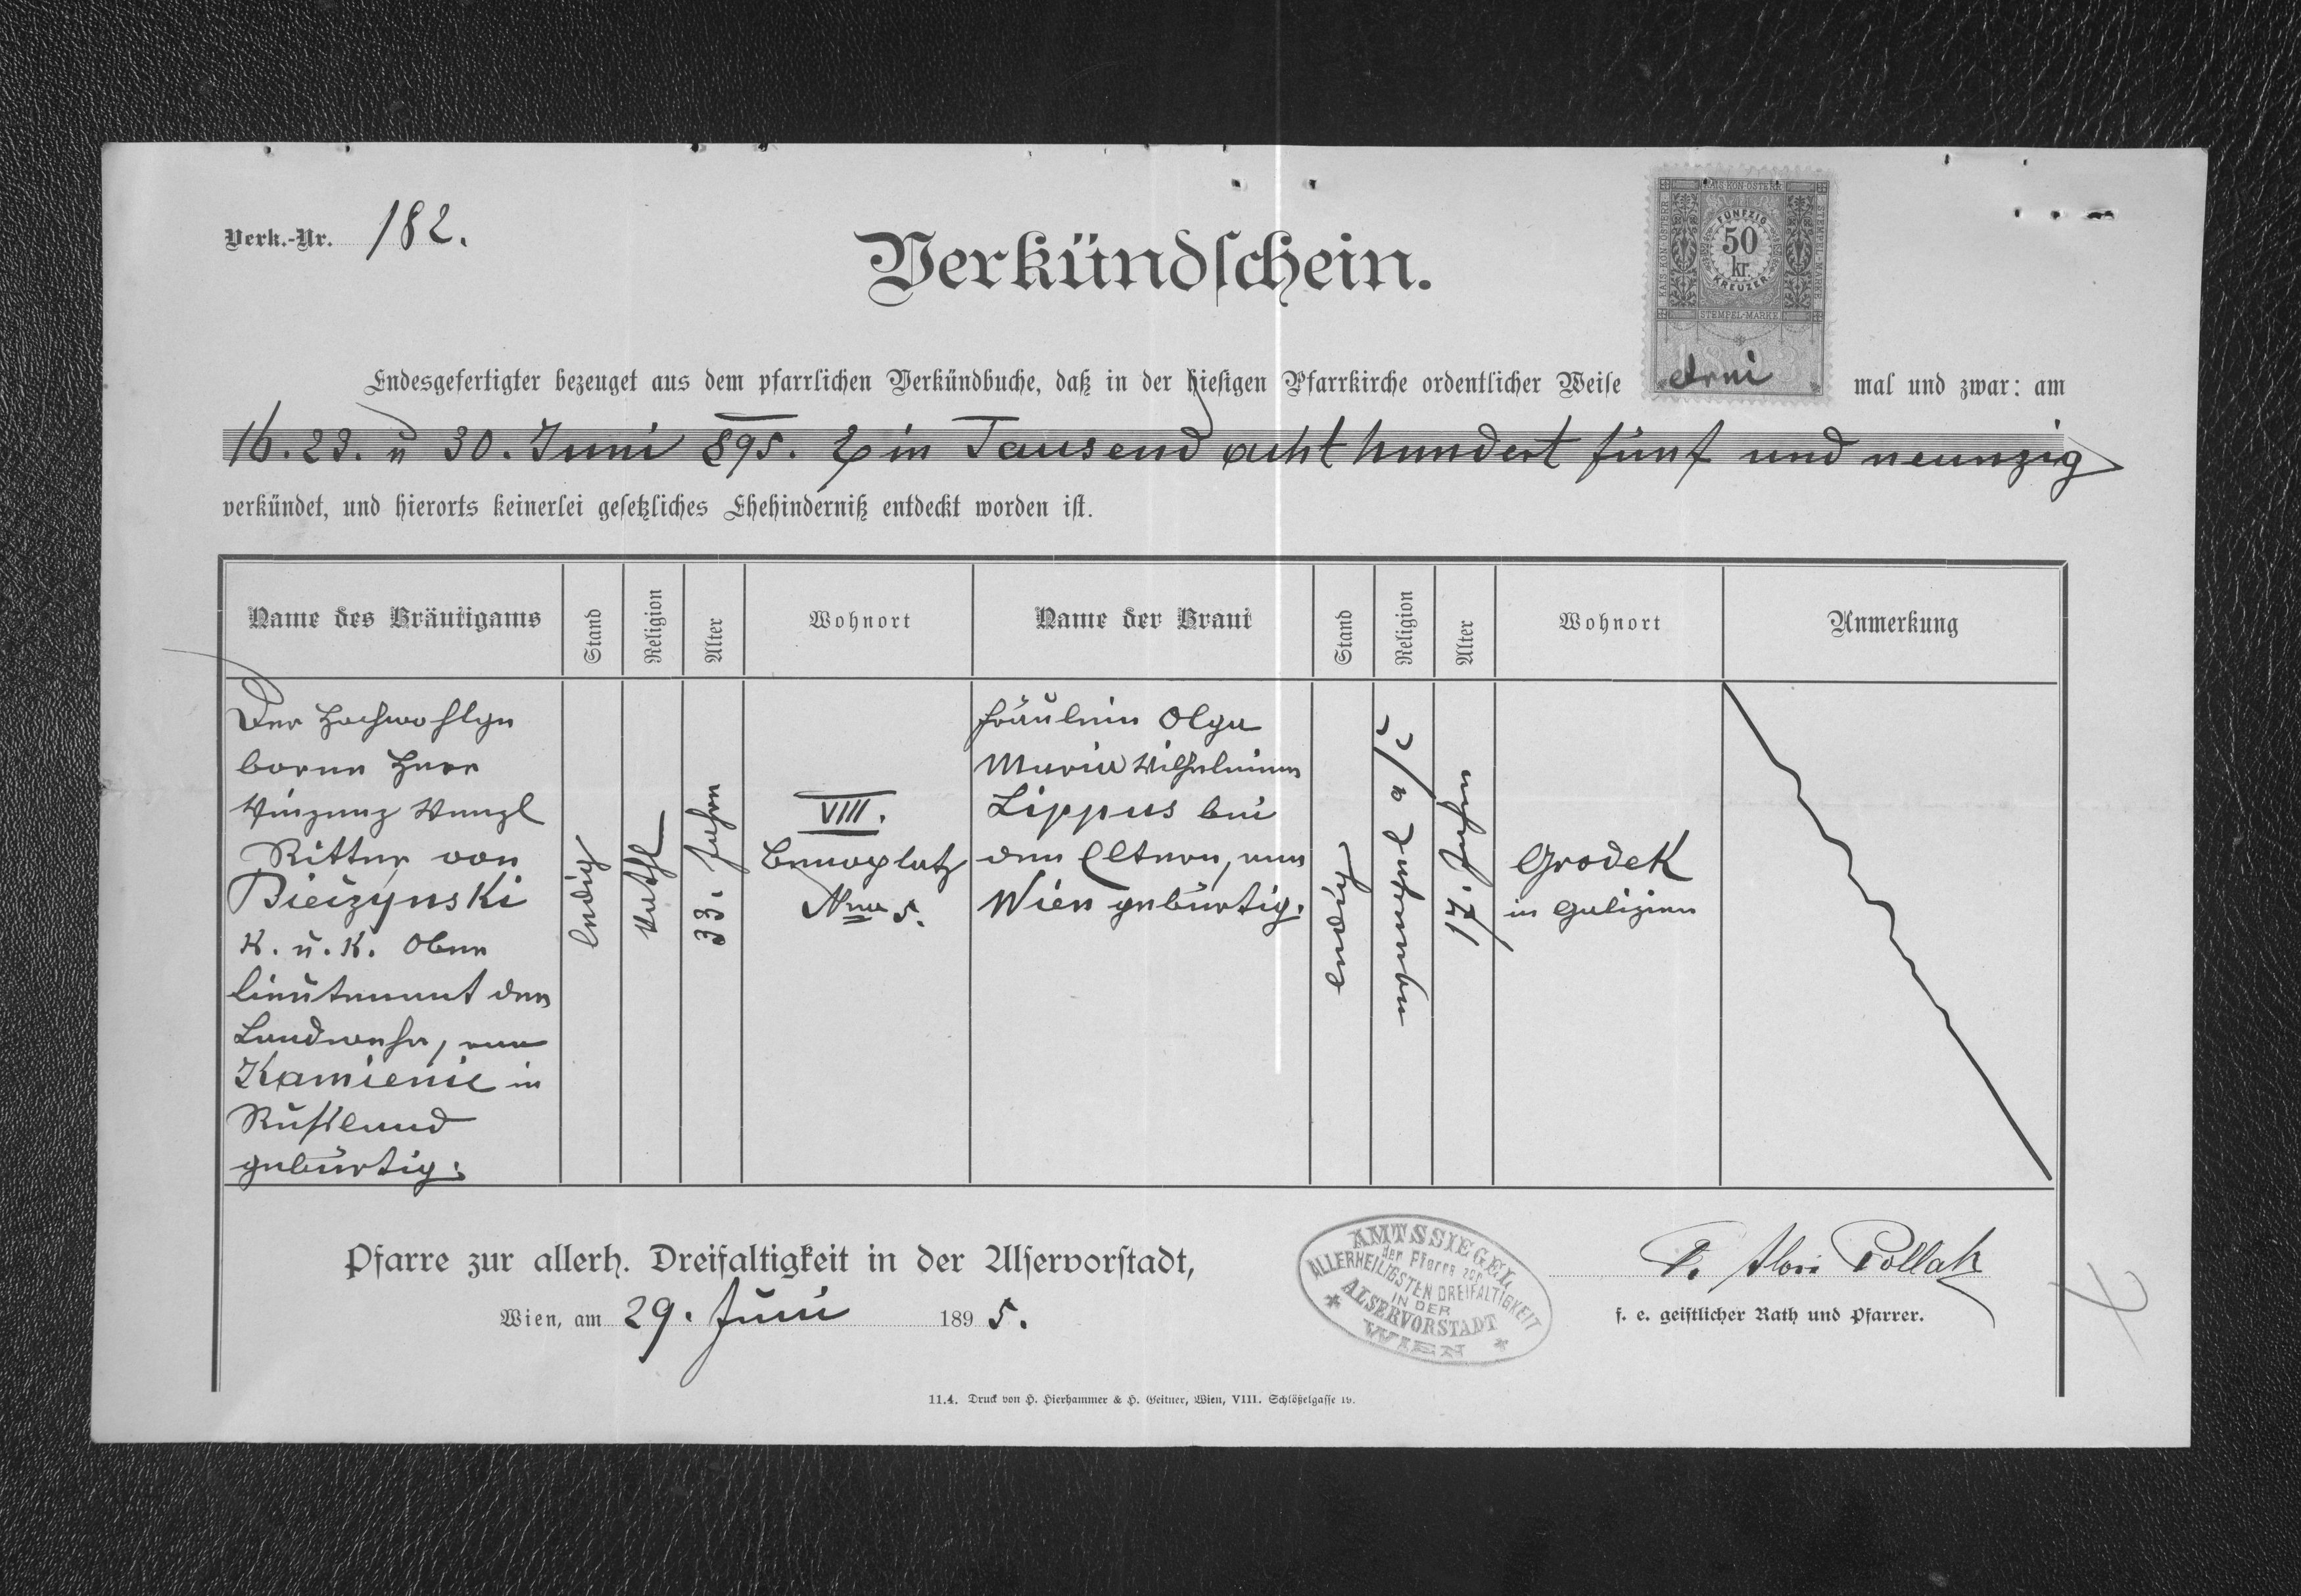 Verk.-Nr. 182.
Verkündschein.
KAIS. KÖN. ÖSTERR.
STEMPEL-MARKE
FÜNFZIG
50
kr.
KREUZER
STEMPEL-MARKE
Endesgefertigter bezeuget aus dem pfarrlichen Verkündbuche, daß in der hiesigen Pfarrkirche ordentlicher Weise drei mal und zwar: am
16. 23. u 30. Juni 895. Ein Tausend acht hundert fünf und neunzig
verkündet, und hierorts keinerlei gesetzliches Ehehinderniß entdeckt worden ist.
Name des Bräutigams Stand Religion Alter Wohnort Name der Braut Stand Religion Alter Wohnort Anmerkung
Der Hochwohlge
borne Herr
Vinzenz Wenzl
Ritter von
Bieczynski
K. u. K. Ober
lieutenant der
Landwehr, aus
Kamienic in
Rußland
gebürtig.
ledig
kathl
33. Jahre
VIII.
Bennoplatz
Nro 5.
Fräulein Olga
Maria Wilhelmine
Lippus bei
den Eltern, aus
Wien gebürtig.
ledig
17. Jahre
Grodek
in Galizien
Pfarre zur allerh. Dreifaltigkeit in der Alservorstadt,
Wien, am 29. Juni 1895.
AMTSSIEGEL
der Pfarre zur
ALLERHEILIGSTEN DREIFALTIGKEIT
IN DER
ALSERVORSTADT
WIEN
P. Pollak
f. e. geistlicher Rath und Pfarrer.
11.4. Druck von H. Hierhammer & H. Geitner, Wien, VIII. Schlößelgasse 19.